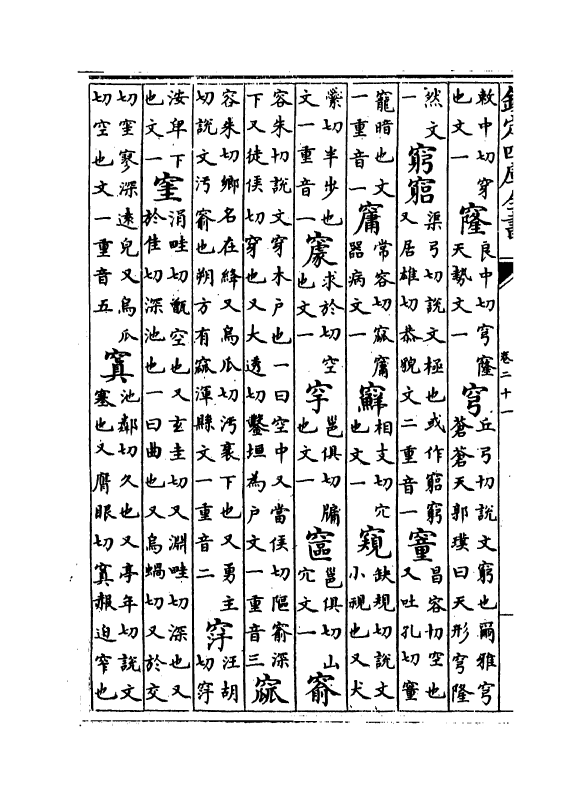 欽定四庫全書
卷二十一
敕中切穿也文一窿良中切穹窿天勢文一穹丘弓切說文窮也爾雅穹蒼蒼天郭璞曰天形穹隆
然文一窮竆渠弓切說文極也或作竆窮又居雄切恭貌文二重音一昌容切空也又吐孔切
寵暗也文一重音一常容切窳器病文一相支切穴也文一窺缺規切說文小視也又犬
橤切半步也文一重音一求於切空也文一穻邕俱切牖也文一邕俱切山穴文一窬
容朱切說文穿木戶也一曰空中又當侯切窬深下又徒侯切穿也又大透切鑿垣為戶文一重音三窳
容朱切鄉名在絳又烏瓜切汚衺下也又勇主切說文汚窬也朔方有窳渾縣文一重音二汪胡切
汝卑下也文一窐涓畦切甑空也又玄圭切又淵畦切深也又於佳切深池也一曰曲也又烏蝸切又於交
切窐寥深遠皃又烏瓜切空也文一重音五窴池鄰切久也又亭年切說文塞也又膺眼切窴赧迫窄也